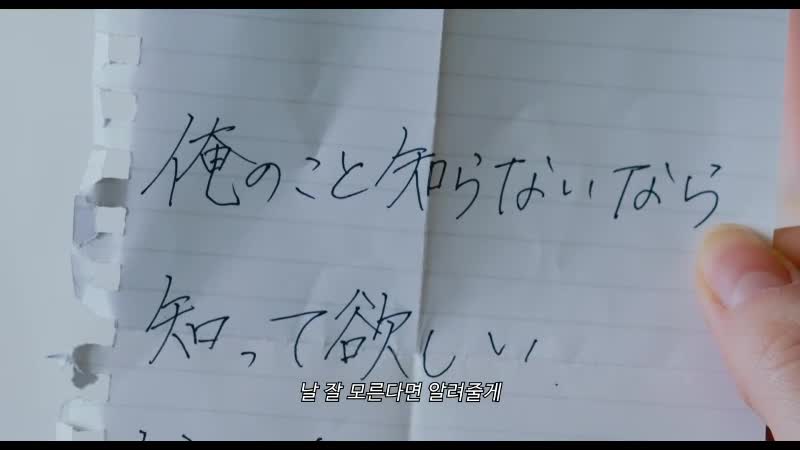 俺のこと知らないなら
知って欲しい
날 잘 모른다면 알려줄게